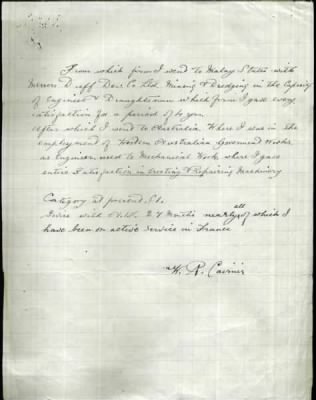 From which firm I went to Malay States with
Messrs Duff Dev. Co Ltd. Mining & Dredging in the Capacity
of Engineer & Draughtsman which firm I gave every
satisfaction for a period of
After which I went to Australia. Where I was in the
employment of Western Australian Government Works
as Engineer used to Mechanical Work where I gave
entire Satisfaction in erecting & Repairing Machinery
Category at present
with 24 Months nearly all of which I
have been on active service in France
W. R.